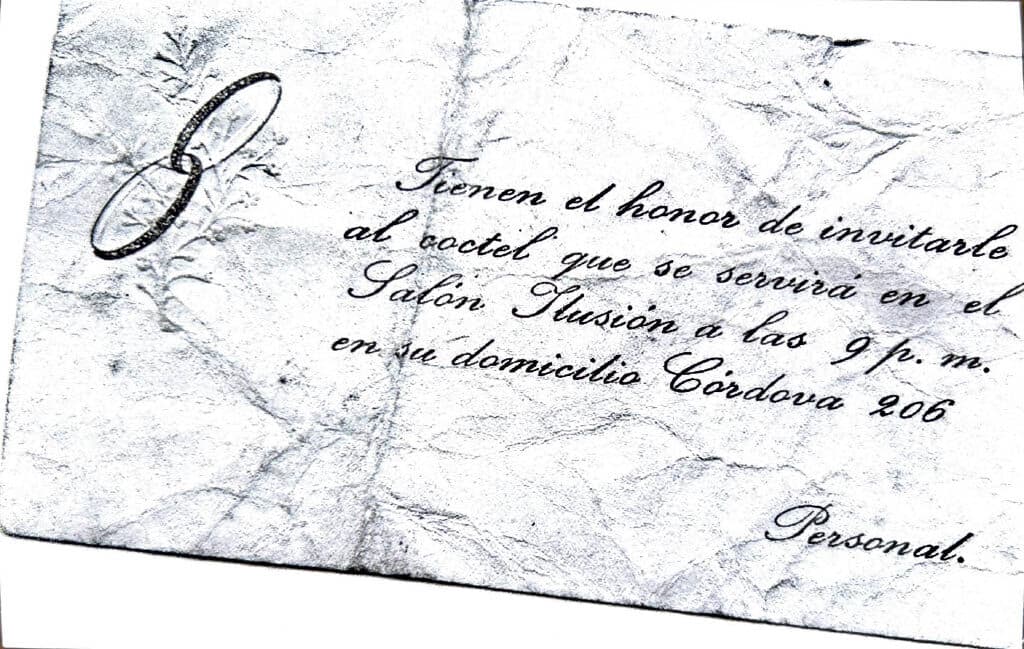 Tienen el honor de invitarle
al coctel que se servirá en el
Salón Ilusión a las 9 p. m.
en su domicilio Córdova 206
Personal.